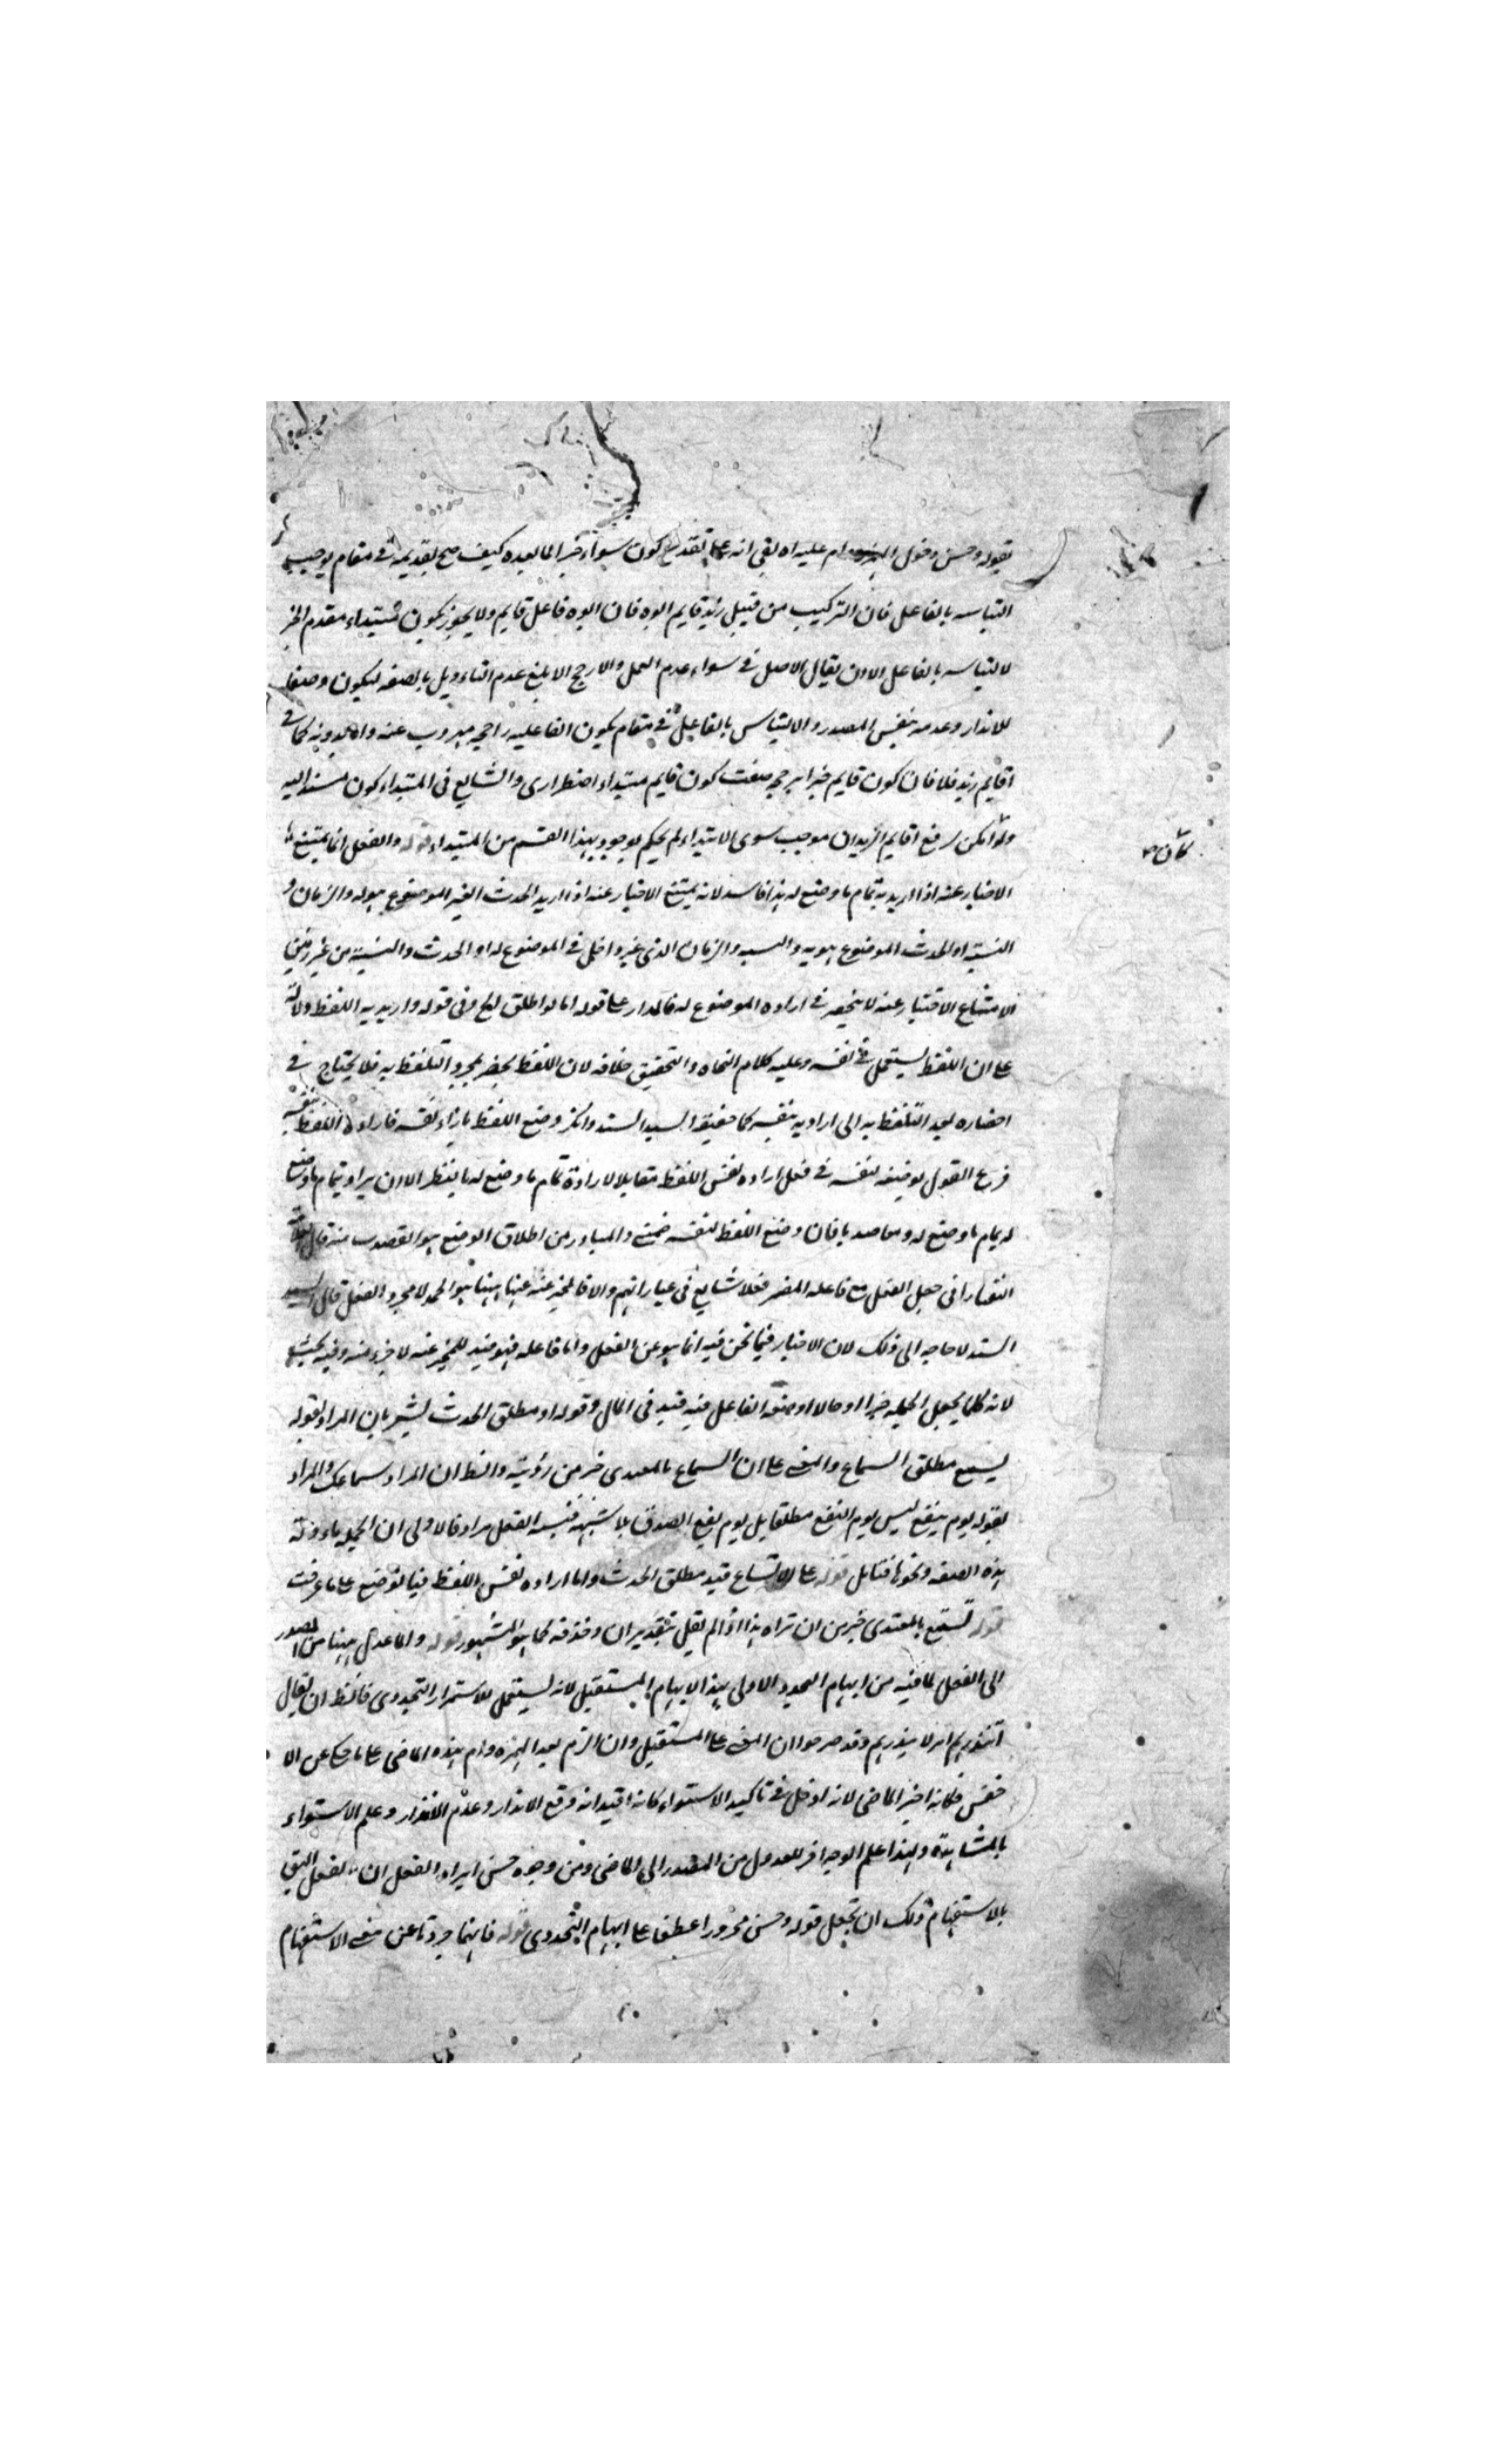 بقوله وحسن دخول الهمزه وام عليه اه بقى انه على تقدير كون سواء خبرا لما بعده كيف صح تقديمه في مقام يوجب
التباسه بالفاعل فان التركيب من قبيل زيد قايم ابوه فان ابوه فاعل قايم ولا يجوز كون مبتداء مقدم الخبر
لالتباسه بالفاعل الا ان يقال الاصل في سواء عدم العمل والارجح الابلغ عدم التاءويل بالصفه ليكون وصفا
للانذار وعدمه بنفس المصدر والالتباس بالفاعل في مقام يكون الفاعليه راجحه مهروب عنه واما بدونه كما في
اقايم زيد فلا فان كون قايم خبرا يرجحه ضعف كون قايم مبتداء اضطرارى والشايع فى المبتداء كون مسندا اليه
ولو امكن لرفع اقايم الزيدان موجب سوى الابتداء لم يحكم بوجود هذا القسم من المبتداء قوله والفعل انما يمتنع
كان
الاخبار عنه اذا اريد به تمام ما وضع له هذا فاسد لانه يمتنع الاخبار عنه اذا اريد الحدث الغير الموضوع هو له والزمان و
النسبة او الحدث الموضوع هو له والنسبه والزمان الذى غير داخل في الموضوع له او الحدث والنسبة من غير زمان
الامتناع الاختيار عنه لا ينحصر في اراده الموضوع له فالمدار على قوله اما لو اطلق الخ وفى قوله واريد به اللفظ دلالة
على ان اللفظ يستعمل في نفسه وعليه كلام النحاه والتحقيق خلافه لان اللفظ يحضر بمجرد التلفظ به فلا يحتاج في
احضاره بعد التلفظ به الى اراديه بنفسه كما حققه السيد السند وانكر وضع اللفظ بازاء نفسه فاراده اللفظ بنفسه
فرع القول بوضعه لنفسه في فعل اراده نفس اللفظ مقابلا لارادة تمام ما وضع له بالنظر الا ان يراد بتمام ما وضع
له تمام ما وضع له قصدا فان وضع اللفظ لنفسه ضمنى والمتبادر من اطلاق الوضع هو القصدى منه قال العلامة
التفتازانى جعل الفعل مع فاعله المضمر فعلا شايع فى عباراتهم والا فالمخبر عنه ههنا هو الجملة لا مجرد الفعل قال السيد
السند لا حاجه الى ذلك لان الاخبار فيما نحن فيه انما هو عن الفعل واما فاعله فهو قيد للمخبر عنه لا جزء منه وفيه بحث
لانه كلما يجعل الجمله خبرا او حالا او صفه الفاعل فيه قيد فى المال وقوله او مطلق الحدث يشعر بان المراد بقوله
تسمع مطلق السماع والمعنى على ان السماع بالمعيدى خير من رؤيته والظ ان المراد سماعك والمراد
بقوله يوم ينفع ليس يوم النفع مطلقا بل يوم نفع الصدق بلا شبهه فنسبة الفعل مراد فالاولى ان الجمله ماءوذلة
بهذه الصفه ونحوها فتامل قوله على الاتساع قيد مطلق الحدث واما اراده نفس اللفظ فبالوضع على ما عرفت
قوله تسمع بالمعيدى خير من ان تراه هذا اذا لم نقل بتقدير ان وحذفه كما هو المشهور قوله وانما عدل ههنا من المصدر
الى الفعل لما فيه من ابهام التجدد الاولى بهذا الابهام المستقبل لانه يستعمل للاستمرار التجددى فالظ ان يقال
اتنذرهم ام لا ينذرهم وقد صرحوا ان المعنى على المستقبل وان التزم بعد الهمزه وام بهذه الماضى على ما حكى عن الا
خفش فكانه اختير الماضى لانه ادخل في تاكيد الاستواء كانه افيد انه وقع الانذار وعدم الانذار وعلم الاستواء
بالمشاهدة وبهذا علم الوجه اخر للعدول من المصدر الى الماضى ومن وجوه حسن ايراد الفعل ان الفعل اليق
بالاستفهام ولك ان تجعل قوله وحسن مجرورا عطفا على ابهام التجددى قوله فانهما جردتا عن معنى الاستفهام